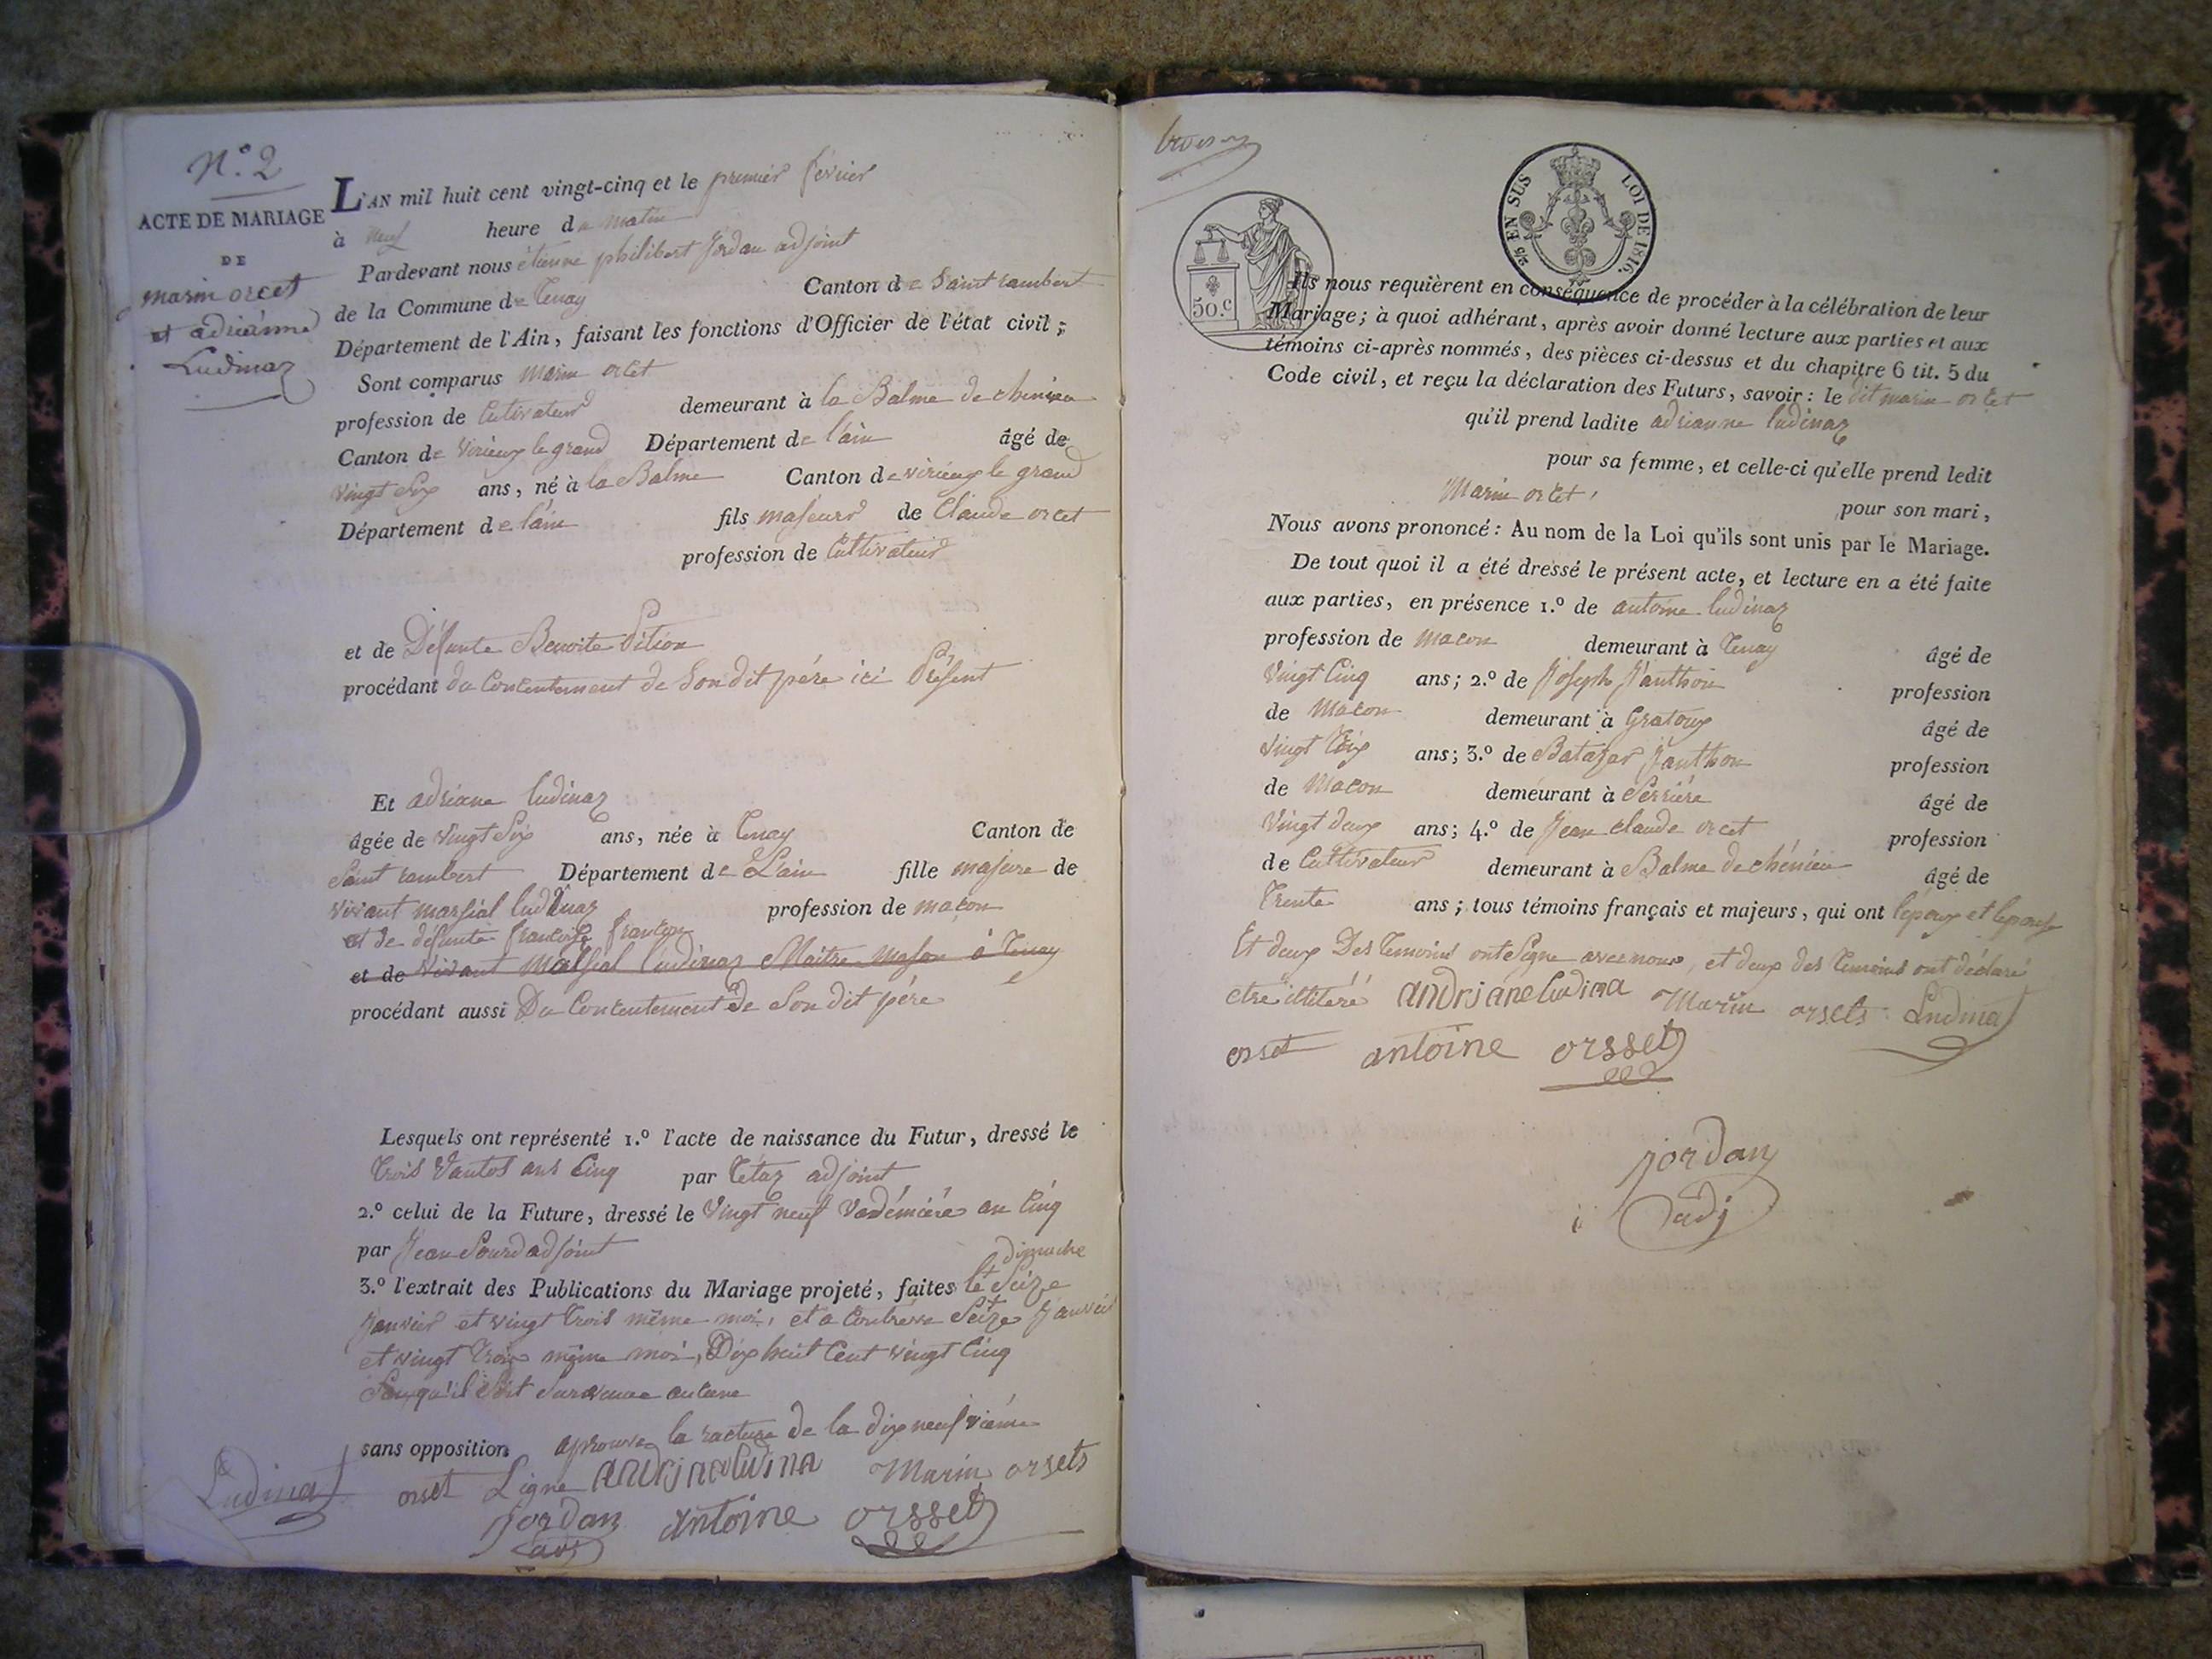 N.º 2
ACTE DE MARIAGE
DE
marin orcet
et adriénne
Ludinaz
L'AN mil huit cent vingt-cinq et le premier février
à neuf heure du matin
Pardevant nous étienne philibert Jordan adjoint
de la Commune de Tenay Canton de Saint rambert
Département de l'Ain, faisant les fonctions d'Officier de l'état civil ;
Sont comparus Marin orcet
profession de Cutivateur demeurant à la Balme de
Canton de Virieux le grand Département de l'ain âgé de
vingt Six ans, né à la Balme Canton de virieux le grand
Département de l'ain fils majeur de Claude orcet
profession de Cultivateur
et de Défunte Benoite Pition
procédant du Concentement de Son dit pére ici Présent
Et adriane ludinaz
âgée de vingt Six ans, née à Tenay Canton de
Saint rambert Département de L'ain fille majeure de
vivant marsial ludinaz profession de macon
et de défunte francoise
et de vivant Malsial ludinaz Maitre Mason à Tenay
procédant aussi Du Concentement de Son dit pére
Lesquels ont représenté 1.º l'acte de naissance du Futur, dressé le
Trois Vantos ans Cinq par Tétaz adjoint
2.º celui de la Future, dressé le Vingt neuf Vandémiére an Cinq
par Jean Sourd adjoint
dimache
3.º l'extrait des Publications du Mariage projeté, faites le Seize
Janvier et vingt trois même moi, et a Contrevoz Seize Janvier
et vingt trois même moi, Dix huit Cent vingt Cinq
San qu'il Soit Survenue aucune
sans opposition aprouve la racture de la dix neuf viéme
Ludina orset Ligne andrianeludina Marin orsets
jordan antoine orsset
adj
trois
50.c
2/5 EN SUS LOI DE 1816.
Ils nous requièrent en conséquence de procéder à la célébration de leur
Mariage ; à quoi adhérant, après avoir donné lecture aux parties et aux
témoins ci-après nommés, des pièces ci-dessus et du chapitre 6 tit. 5 du
Code civil, et reçu la déclaration des Futurs, savoir : le dit marin orcet
qu'il prend ladite adrianne ludinaz
pour sa femme, et celle-ci qu'elle prend ledit
Marin orcet, pour son mari,
Nous avons prononcé : Au nom de la Loi qu'ils sont unis par le Mariage.
De tout quoi il a été dressé le présent acte, et lecture en a été faite
aux parties, en présence 1.º de antoine ludinaz
profession de macon demeurant à Tenay âgé de
Vingt Cinq ans ; 2.º de Joseph Janthon profession
de Macon demeurant à Gratoux âgé de
vingt ans ; 3.º de Batazar Janthon profession
de Macon demeurant à Serriére âgé de
Vingt deux ans ; 4.º de Jean claude orcet profession
de Cultivateur demeurant à Balme de chénieu âgé de
Trente ans ; tous témoins français et majeurs, qui ont l'epoux et lepouse
Et deux Des Temoins ont Signe avec nous, et deux des Temoins ont déclaré
etre illitéré andrianeludina Marin orsets Ludina
orset antoine orsset
jordan
adj